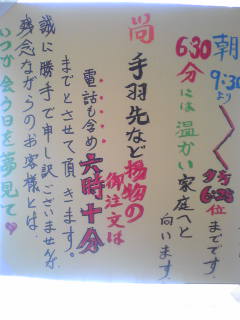 朝9:30より
夕方6:25位までです。
6:30分には温かい家庭へと
向います
尚 手羽先など揚物の
御注文は
電話も含め六時十分
までとさせて頂きます。
誠に勝手で申し訳ございませんが
残念ながらのお客様とは、
いつか会う日を夢見て♥